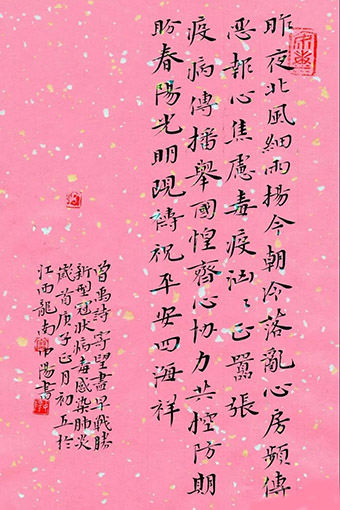 昨夜北風細雨揚今朝冷落亂心房頻傳
惡報心焦慮毒疫汹〻正囂張
疫病傳播舉國惶齊心協力共控防期
盼春陽光明現禱祝平安四海祥
曾禹詩寄望盡早戰勝
新型冠狀病毒感染肺炎
歲首庚子正月初五於
江西龍南陽書